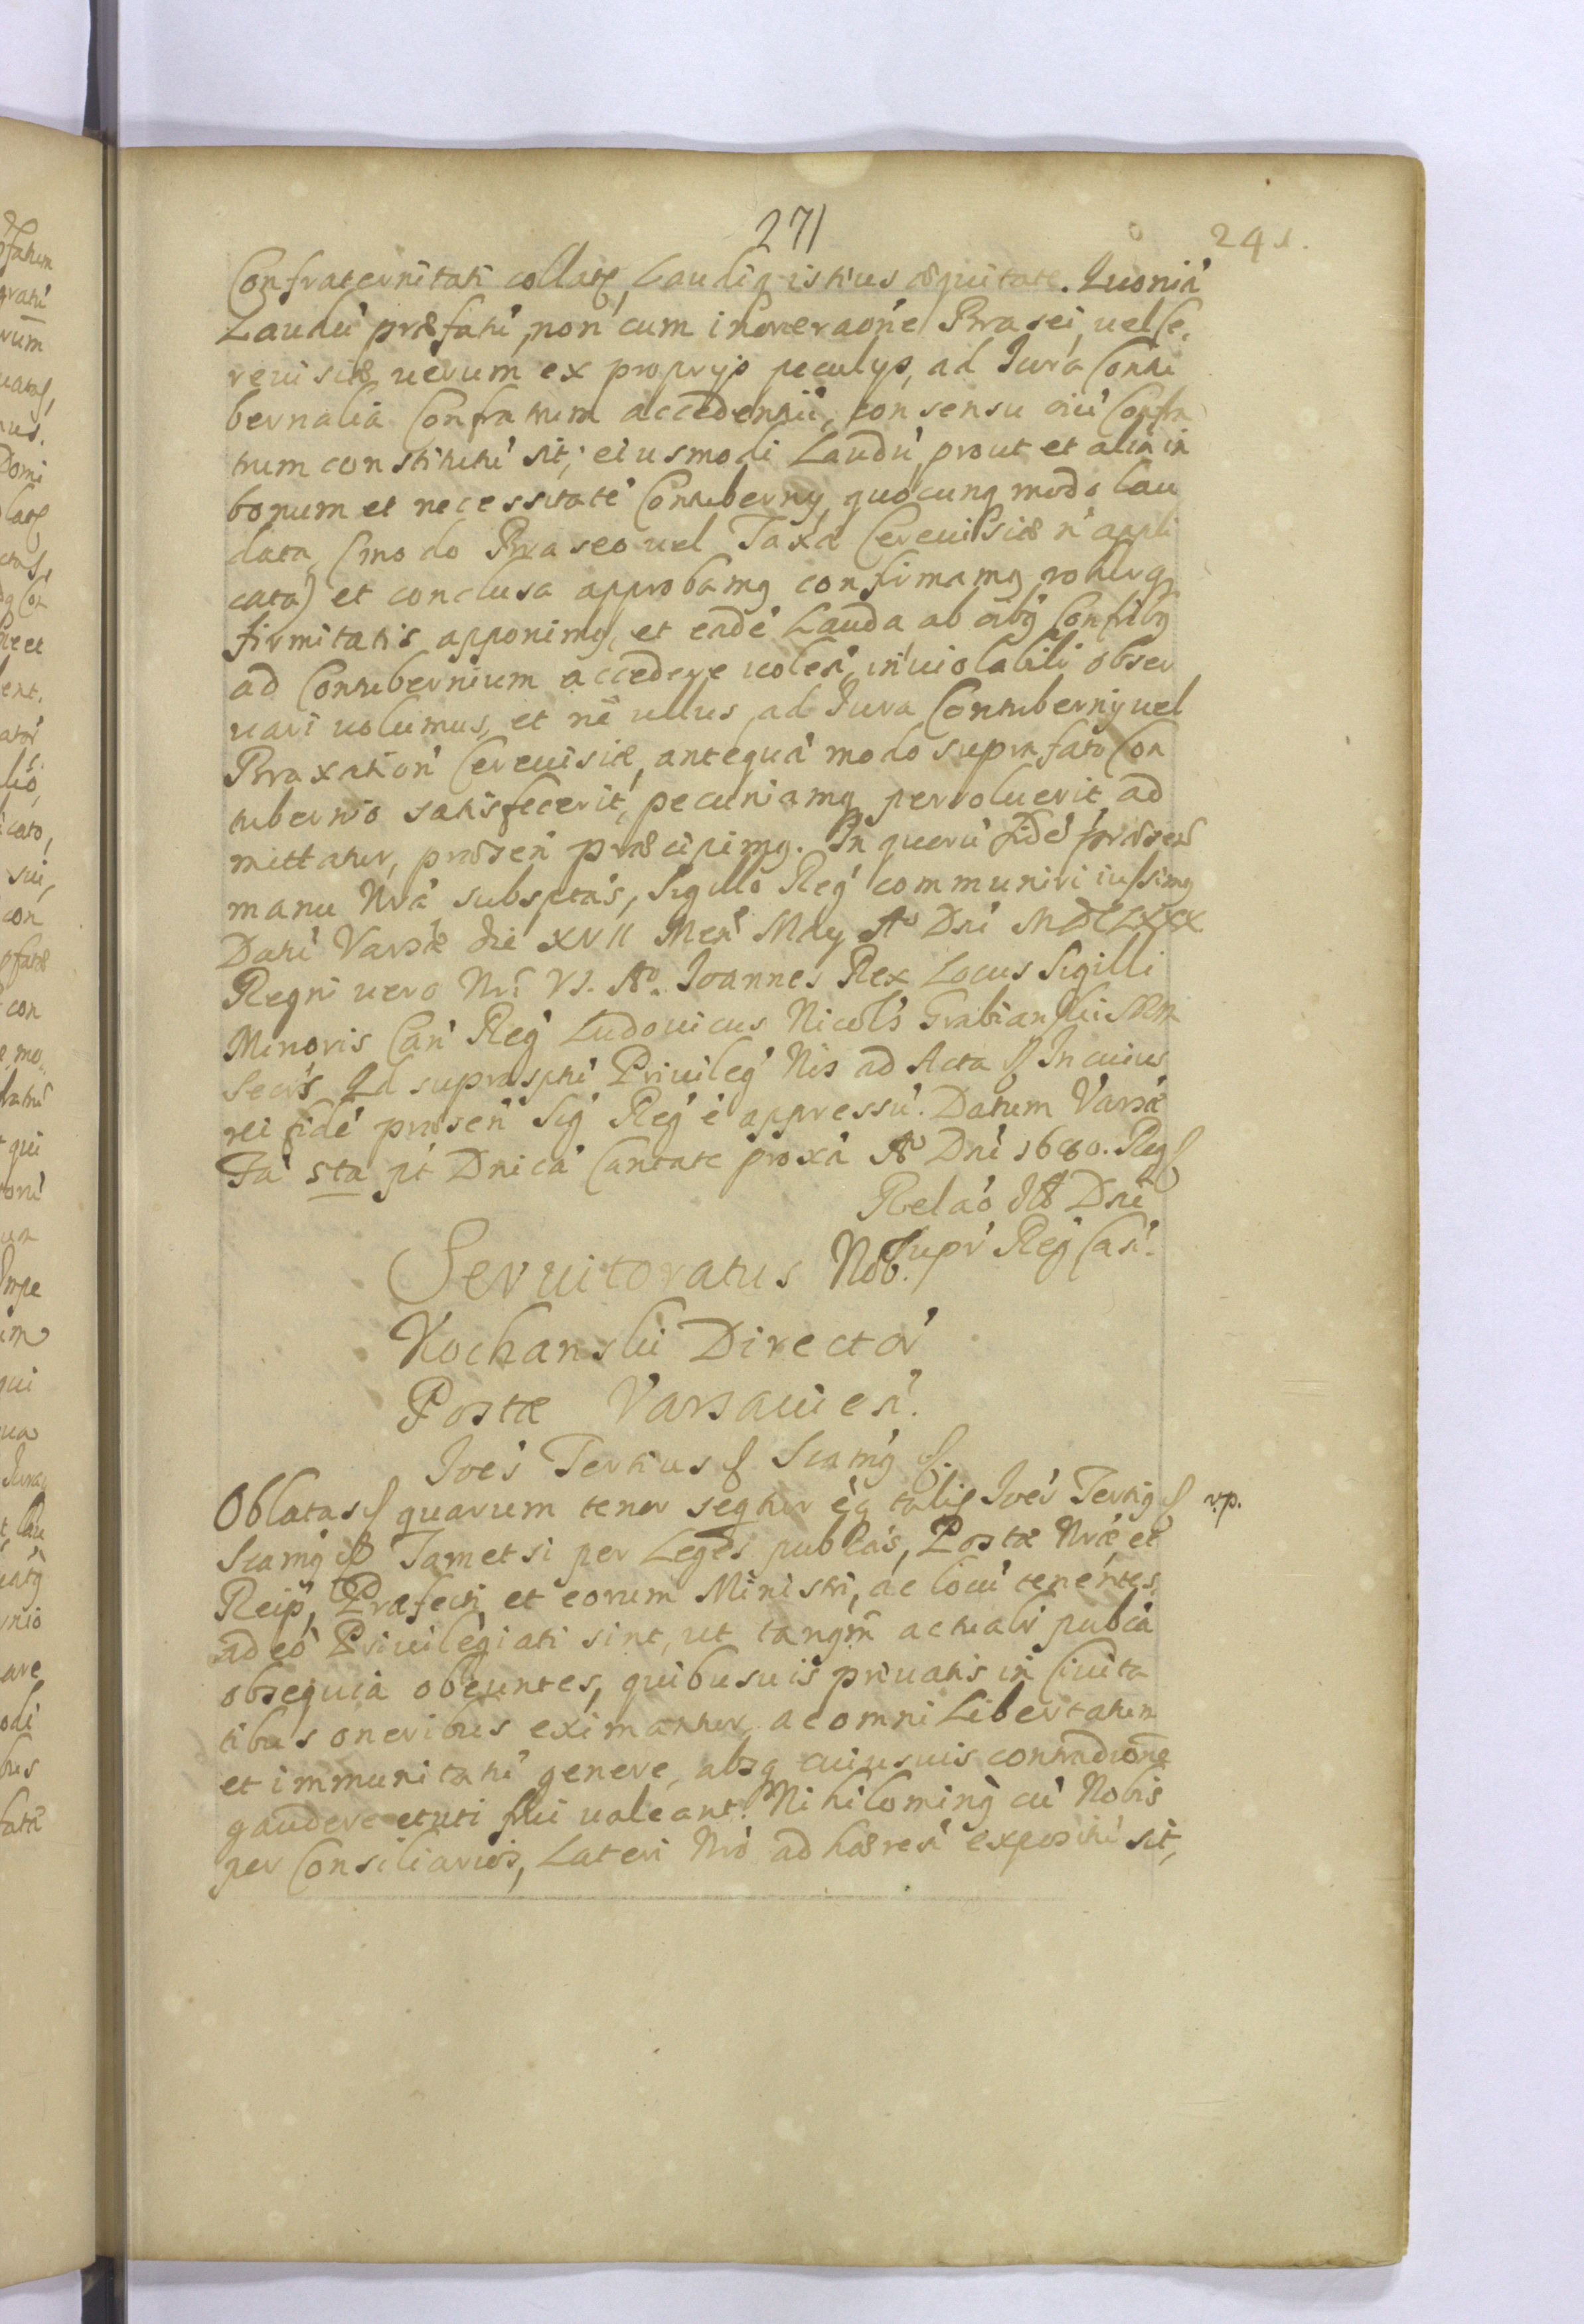 271
241.
Confraternitati collatę, Laudiq istius æquitate. Quonia'
Laudu' præfatu', non cum Brasei, uel Ce,
reuisiæ uerum ex proprys peculys, ad Iura Contu
bernalia Confratrum accedentiu', consensu oiu' Confra
trum constitutu' sit; eiusmodi Laudu', prout et alia in
bonum et necessitate' Contuberny, quocunq modo lau
data, (modo Braseo uel Taxa Cereuisiæ n' appli
cata) et conclusa approbamq confirmamq roburq
firmitatis apponimq, et eade' Lauda ab oibq Confribq
ad Contubernium accedere uolen', inuiolabili obser
uari uolumus, et ne ullus, ad Iura Contuberny uel
Braxation' Cereuisiæ, antequa' modo suprafato Con
tubernio satisfecerit, pecuniamq persoluerit ad
mittatur, præsen' præcipimq. In quoru' fide' præsen
manu Nra' subsptas, Sigillo Reg' communiri iussimq
Datu' Varsæ die XVII Men' May Ao Dni MDCLXXX
Regni uero Nri VI. Ao. Joannes Rex Locus Sigilli
Minoris Can' Reg' Ludouicus Nicols Grabianski SRM
Secrs Qd suprasptu' Priuileg' Nis ad Acta In cuius
rei fide' præsen' Sig' Reg' e' appressu'. Datum Varsæ
Fa' sta pt Dnica' Cantate proxa' Ao Dni 1680. Reg
Relao Dni
Supr' Reg' Can'.
Seruitoratus Nob.
Kochanski Director'
Postæ Varsauien'.
Joes Tertius Scamq
Oblatas quarum tenor seqtur eq talis Joes Tertiq
r.p.
Scamq Tametsi per Leges publcas, Postæ Nræ et
Reip', Præfecti et eorum Ministri, ac locu' tenentes
adeo Priuilegiati sint, ut tanqm actuali publca
obsequia obeuntes, quibusuis priuatis in Ciuita
tibus oneribus eximantur, ac omni Libertatum
et immunitatu' genere, absq cuiusuis contradione
gaudere et uti frui ualeant. Nihilominq cu' Nobis
per Consiliarios, Lateri Nro' adhæren' expositu' sit,